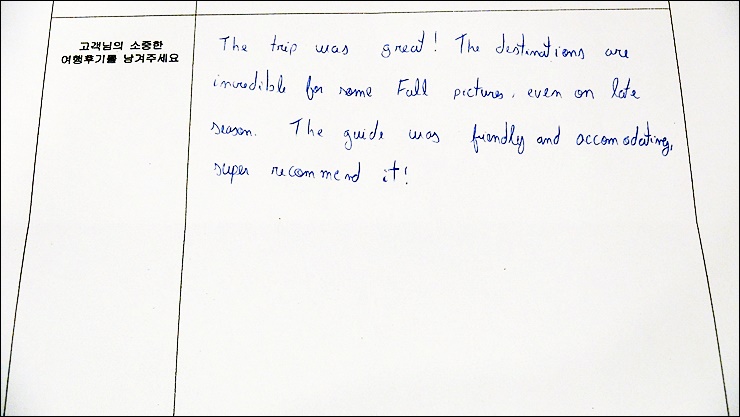 고객님의 소중한
여행후기를 남겨주세요
The trip was great! The destinations are
incredible for some Fall pictures, even on late
season. The guide was friendly and accomodating,
super recommend it!